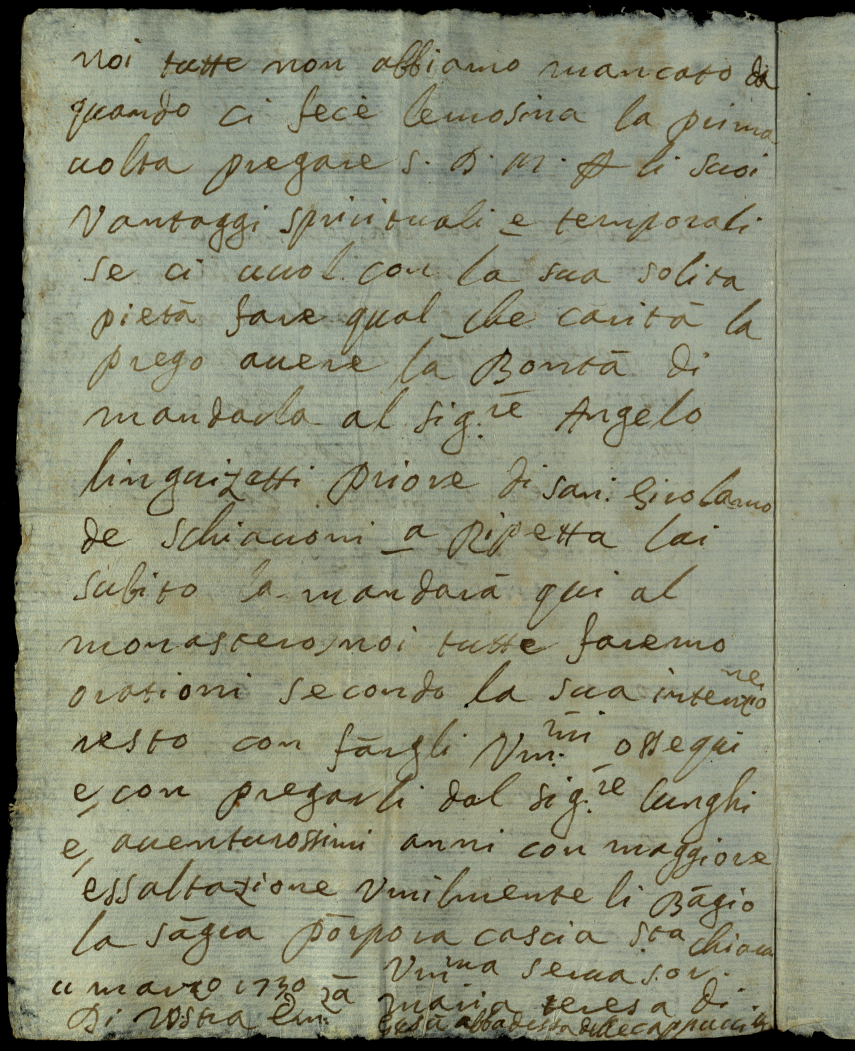 noi tutte non abbiamo mancato da
quando ci fecè lemosina la prima
uolta pregare S. D. M. p li suoi
Vantaggi spirituali e temporali
se ci uuol con la sua solita
pietà fare qual che carità la
prego auere la Bontà di
mandarla al Sig.re Angelo
linguizetti Priore di san Girolamo
de schiauoni a Ripetta lui
subito la mandarà qui al
monastero, noi tutte faremo
orationi secondo la sua intenzione
resto con fàrgli Vm.mi ossequi
e, con pregarli dal Sig.re lunghi
e, auenturossimi anni con maggiore
essaltazione Vmilmente li Bàgio
la sàgra pòrpora cascia Sta chiara
11 marzo 1730 Vm.ma serua sor.
Di Vostra Em.zà maria teresa di
Giesù abbadessa delle cappuccine